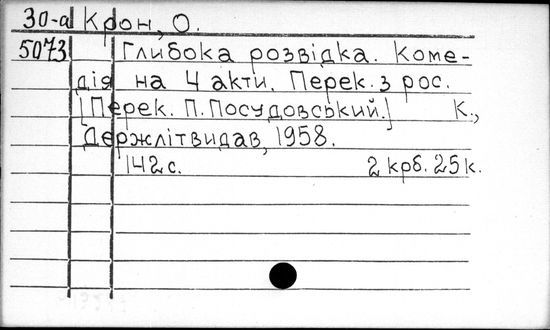 30-а Крон, О.
5073 Глибока розвідка. Коме-
дія на 4 акти. Перек. з рос.
[Перек. П. Посудовський.] К.,
Держлітвидав, 1958.
142 с. 2 крб. 25 к.